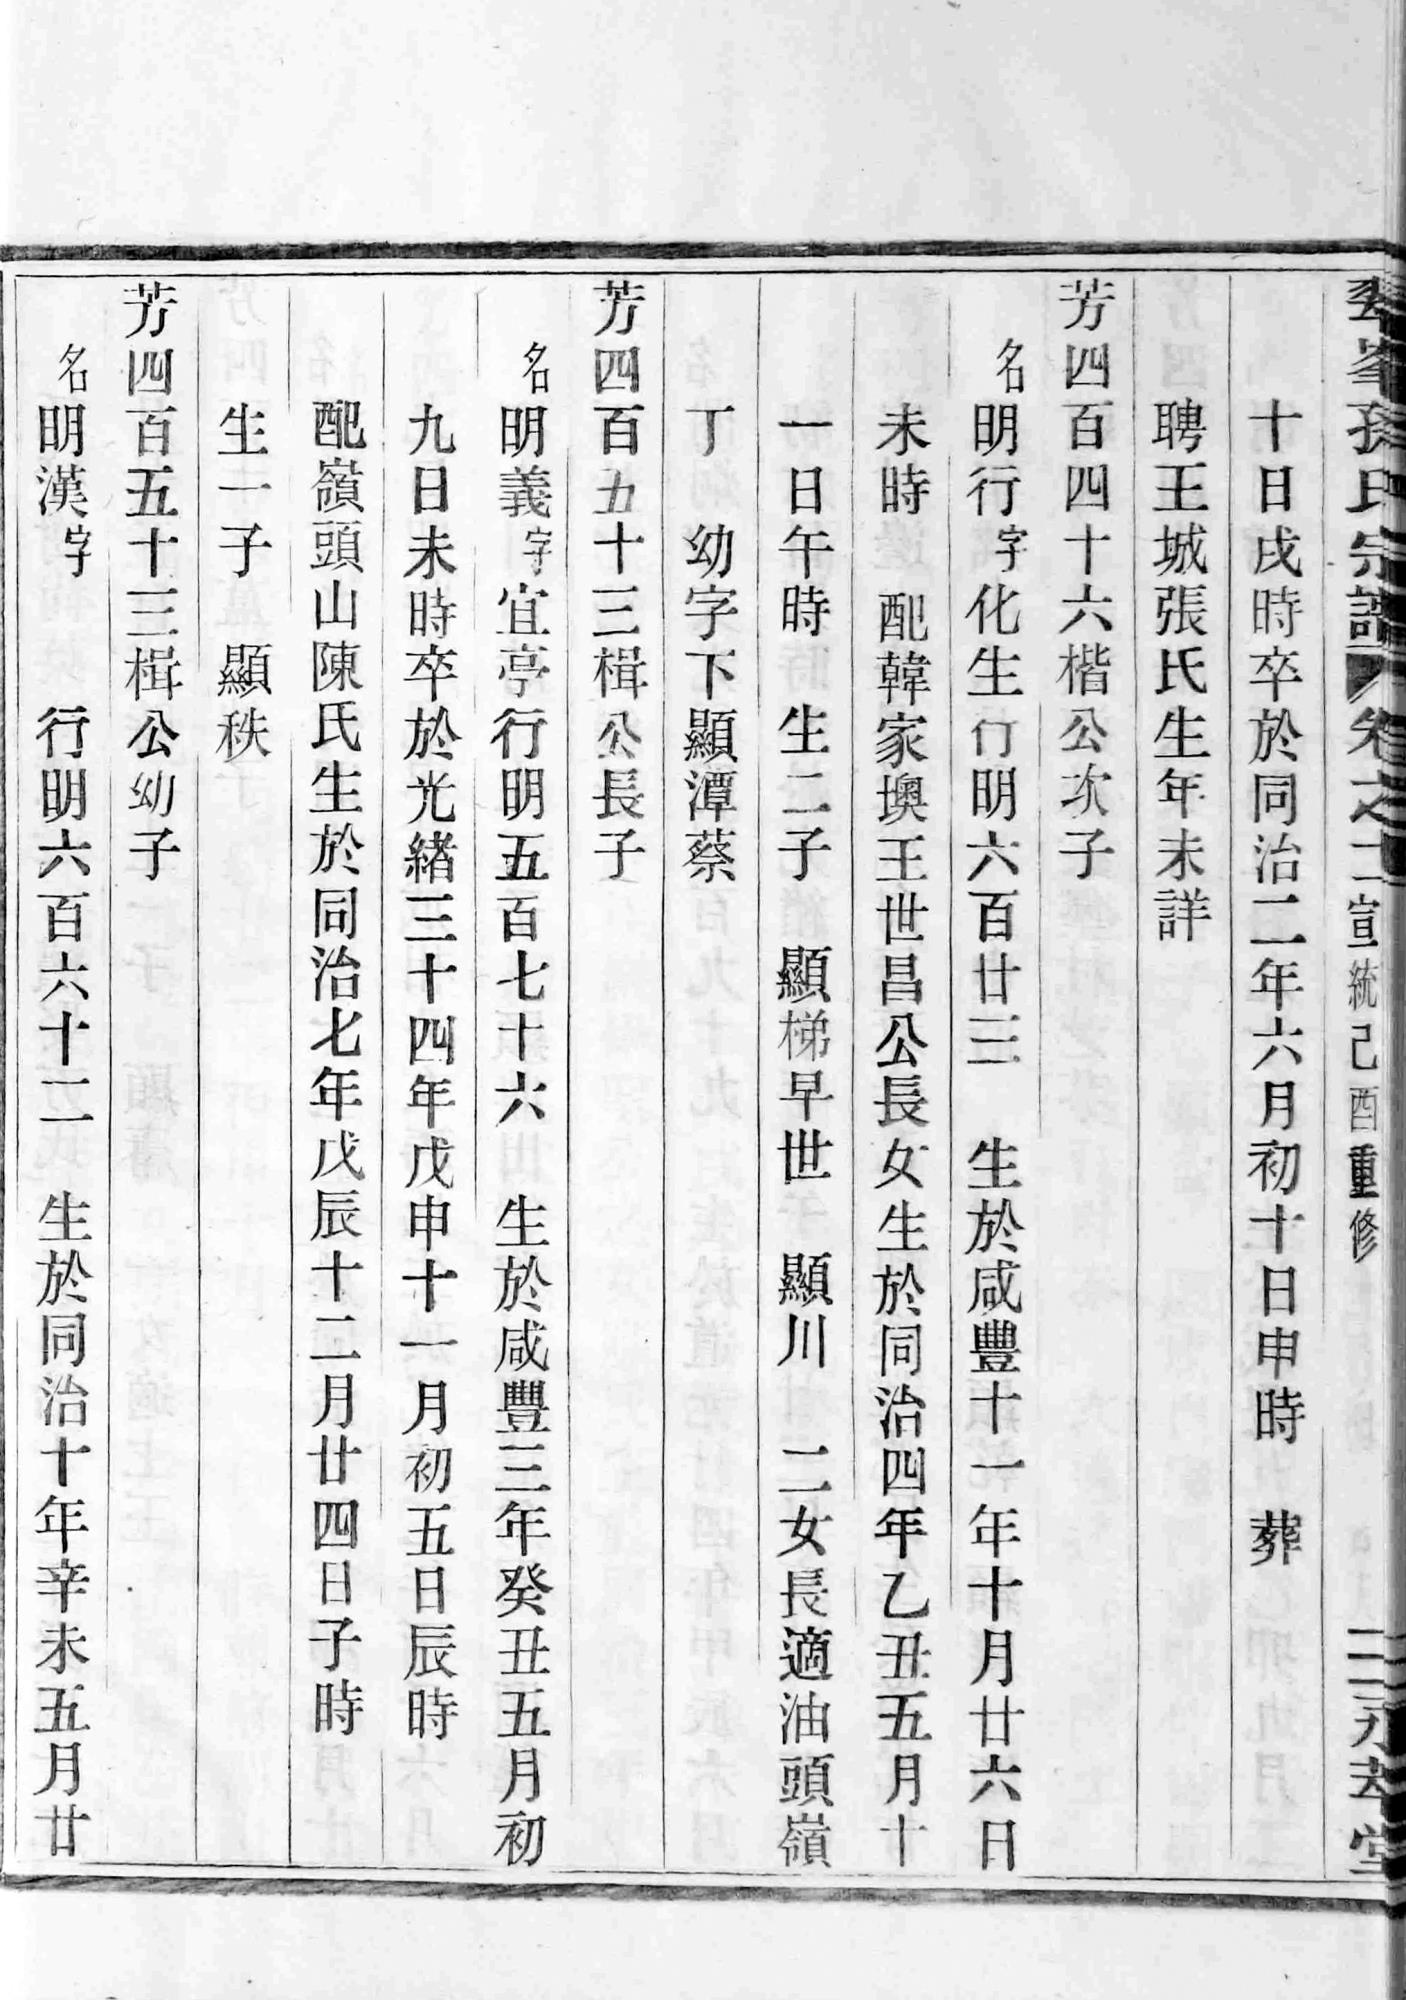 峯孫氏宗譜 卷之十二 宣統己酉重修 永孝堂
十日戌時卒於同治二年六月初十日申時 葬
聘王城張氏生年未詳
芳四百四十六楷公次子
名明行字化生行明六百廿三 生於咸豐十一年十月廿六日
未時 配韓家墺王世昌公長女生於同治四年乙丑五月十
一日午時 生二子 顯梯早世 顯川 二女長適油頭嶺
丁 幼字下顯潭蔡
芳四百五十三楫公長子
名明義字宜亭行明五百七十六 生於咸豐三年癸丑五月初
九日未時卒於光緒三十四年戊申十一月初五日辰時
配嶺頭山陳氏生於同治七年戊辰十二月廿四日子時
生一子 顯秩
芳四百五十三楫公幼子
名明漢字 行明六百六十二 生於同治十年辛未五月廿